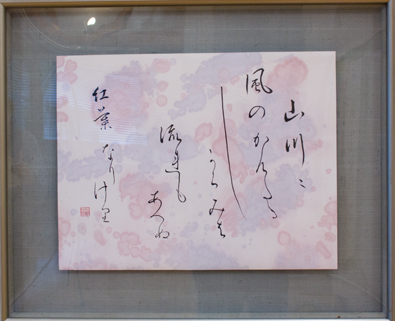 山川に
風のかけたる
しがらみは
流れもあへぬ
紅葉なりけり